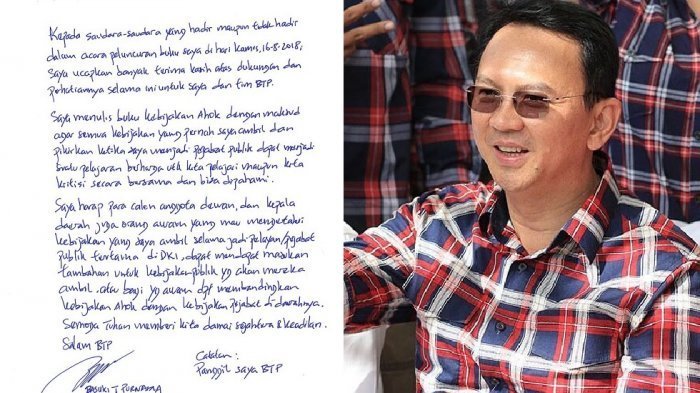 Kepada saudara-saudara yang hadir maupun tidak hadir
dalam acara peluncuran buku saya di hari Kamis, 16-8-2018,
saya ucapkan banyak terima kasih atas dukungan dan
perhatiannya selama ini untuk saya dan tim BTP.
Saya menulis buku kebijakan Ahok dengan maksud
agar semua kebijakan yang pernah saya ambil dan
pikirkan ketika saya menjadi pejabat publik dapat menjadi
suatu pelajaran berharga utk kita pelajari maupun kita
kritisi secara bersama dan bisa dipahami.
Saya harap para calon anggota dewan, dan kepala
daerah juga orang awam yang mau mengetahui
kebijakan yang saya ambil selama jadi pelayan/pejabat
publik terutama di DKI, dapat mendapat masukan
tambahan untuk kebijakan publik yg akan mereka
ambil. atau bagi yg awam dpt membandingkan
kebijakan Ahok dengan kebijakan pejabat di daerahnya.
Semoga Tuhan memberi kita damai sejahtera & keadilan.
Salam BTP
Catatan:
Panggil saya BTP
BASUKI T PURNAMA